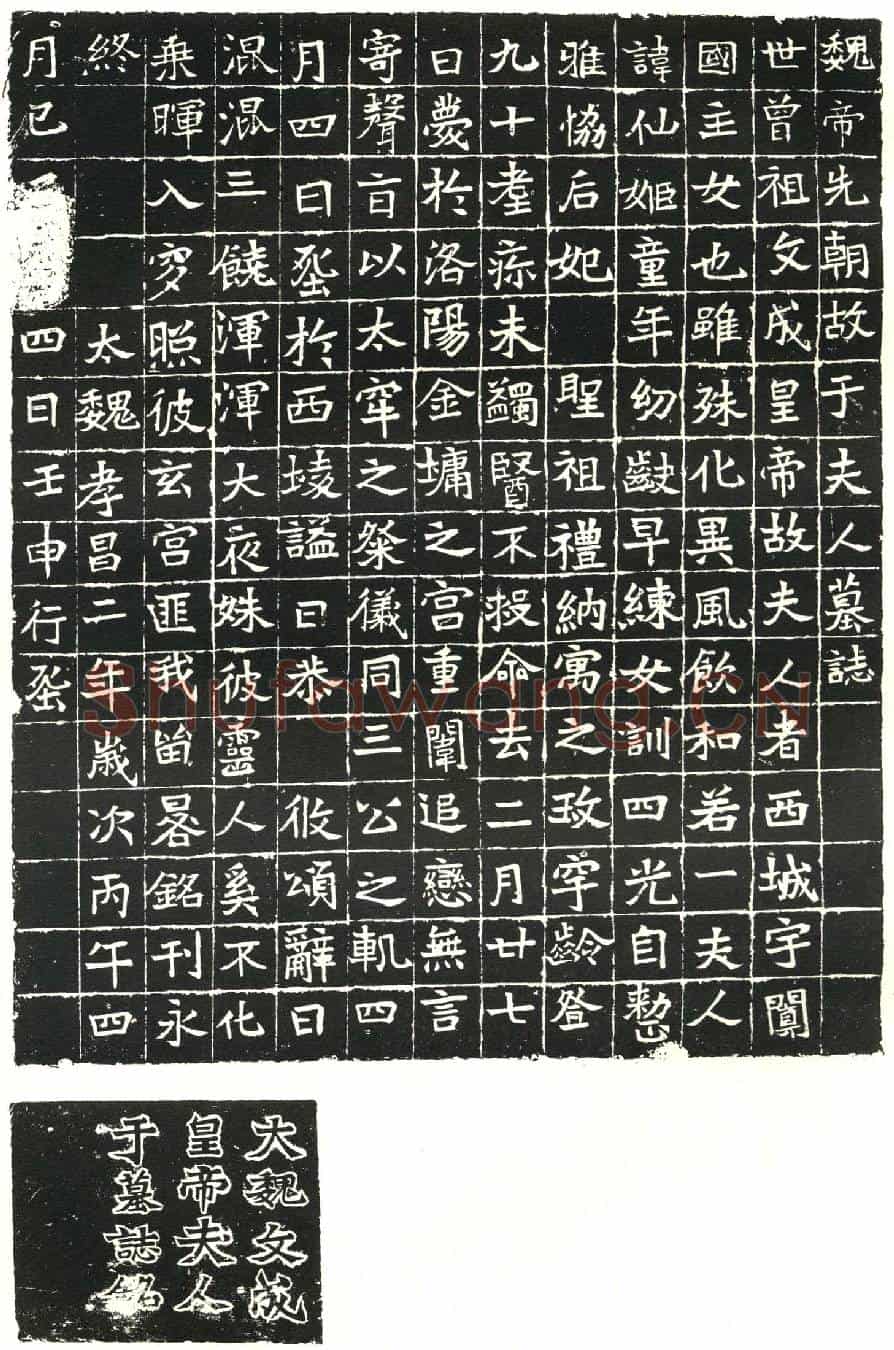 魏帝先朝故于夫人墓誌
世曾祖文成皇帝故夫人者西城宇闐
國主女也雖殊化異風飲和若一夫人
諱仙姬童年幼齓早練女訓四光自整
雅協后妃 聖祖禮納寓之玫宇齡登
九十耋疹未蠲醫不救命去二月廿七
日薨於洛陽金墉之宮重闈追戀無言
寄聲旨以太牢之祭儀同三公之軌四
月四日葬於西陵謚曰恭 攸頌辭曰
混混三饒渾渾大夜姝彼靈人奚不化
乘暉入穸照彼玄宮匪我留晷銘刊永
終 太魏孝昌二年歲次丙午四
月己 四日壬申行葬
大魏文成
皇帝夫人
于墓誌銘
Shufawang.CN